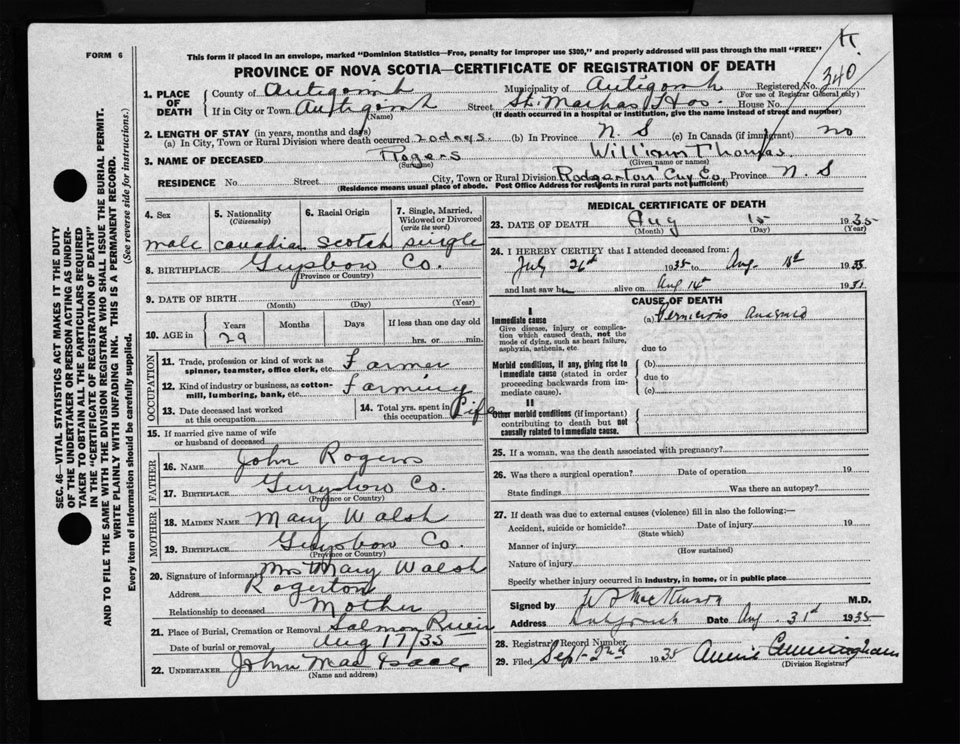 FORM 6
This form if placed in an envelope, marked "Dominion Statistics—Free, penalty for improper use $300," and properly addressed will pass through the mail "FREE"
K.
PROVINCE OF NOVA SCOTIA—CERTIFICATE OF REGISTRATION OF DEATH
340
1. PLACE OF DEATH
County of Antigonish Municipality of Antigonish Registered No.
(For use of Registrar General only)
If in City or Town Antigonish Street St. Marthas Hos. House No.
(Name) (If death occurred in a hospital or institution, give the name instead of street and number)
2. LENGTH OF STAY (in years, months and days)
(a) In City, Town or Rural Division where death occurred 20 days. (b) In Province N. S (c) In Canada (if immigrant) no
3. NAME OF DECEASED Rogers William Thomas.
(Surname) (Given name or names)
RESIDENCE No. Street City, Town or Rural Division Rodgerton Guy Co. Province N. S
(Residence means usual place of abode. Post Office Address for residents in rural parts not sufficient)
4. Sex
5. Nationality (Citizenship)
6. Racial Origin
7. Single, Married, Widowed or Divorced (write the word)
male canadian scotch single
8. BIRTHPLACE Guysboro Co.
(Province or Country)
9. DATE OF BIRTH
(Month) (Day) (Year)
10. AGE in
Years Months Days If less than one day old
29 hrs. or min.
OCCUPATION
11. Trade, profession or kind of work as spinner, teamster, office clerk, etc. Farmer
12. Kind of industry or business, as cotton-mill, lumbering, bank, etc. Farming
13. Date deceased last worked at this occupation
14. Total yrs. spent in this occupation Life
15. If married give name of wife or husband of deceased
FATHER
16. NAME John Rogers
17. BIRTHPLACE Guysboro Co.
(Province or Country)
MOTHER
18. MAIDEN NAME Mary Walsh
19. BIRTHPLACE Guysboro Co.
(Province or Country)
20. Signature of informant Mrs Mary Walsh
Address Rogerton
Relationship to deceased Mother
21. Place of Burial, Cremation or Removal Salmon River
Date of burial or removal Aug 17/35
22. UNDERTAKER John MacIsaac
(Name and address)
MEDICAL CERTIFICATE OF DEATH
23. DATE OF DEATH Aug 15 1935
(Month) (Day) (Year)
24. I HEREBY CERTIFY that I attended deceased from:
July 26th 1935 to Aug. 1935
and last saw h alive on Aug 14th 193
CAUSE OF DEATH
I
Immediate cause (a) Pernicious Anaemia
Give disease, injury or complication which caused death, not the mode of dying, such as heart failure, asphyxia, asthenia, etc.
due to
Morbid conditions, if any, giving rise to immediate cause (stated in order proceeding backwards from immediate cause).
(b)
due to
(c)
II
Other morbid conditions (if important) contributing to death but not causally related to immediate cause.
25. If a woman, was the death associated with pregnancy?
26. Was there a surgical operation? Date of operation 19
State findings Was there an autopsy?
27. If death was due to external causes (violence) fill in also the following:—
Accident, suicide or homicide? Date of injury 19
(State which)
Manner of injury
(How sustained)
Nature of injury
Specify whether injury occurred in industry, in home, or in public place
Signed by M.D.
Address Date Aug. 31st 1935
28. Registrar's Record Number
29. Filed Sept. 2nd 1935 Annie Cunningham
(Division Registrar)
SEC. 46—VITAL STATISTICS ACT MAKES IT THE DUTY
OF THE UNDERTAKER OR PERSON ACTING AS UNDER-
TAKER TO OBTAIN ALL THE PARTICULARS REQUIRED
IN THE "CERTIFICATE OF REGISTRATION OF DEATH"
AND TO FILE THE SAME WITH THE DIVISION REGISTRAR WHO SHALL ISSUE THE BURIAL PERMIT.
WRITE PLAINLY WITH UNFADING INK. THIS IS A PERMANENT RECORD.
Every item of information should be carefully supplied. (See reverse side for instructions.)